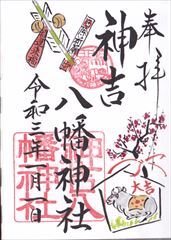 奉拝
神吉八幡神社
令和三年一月一日
大吉
神吉八
幡神社